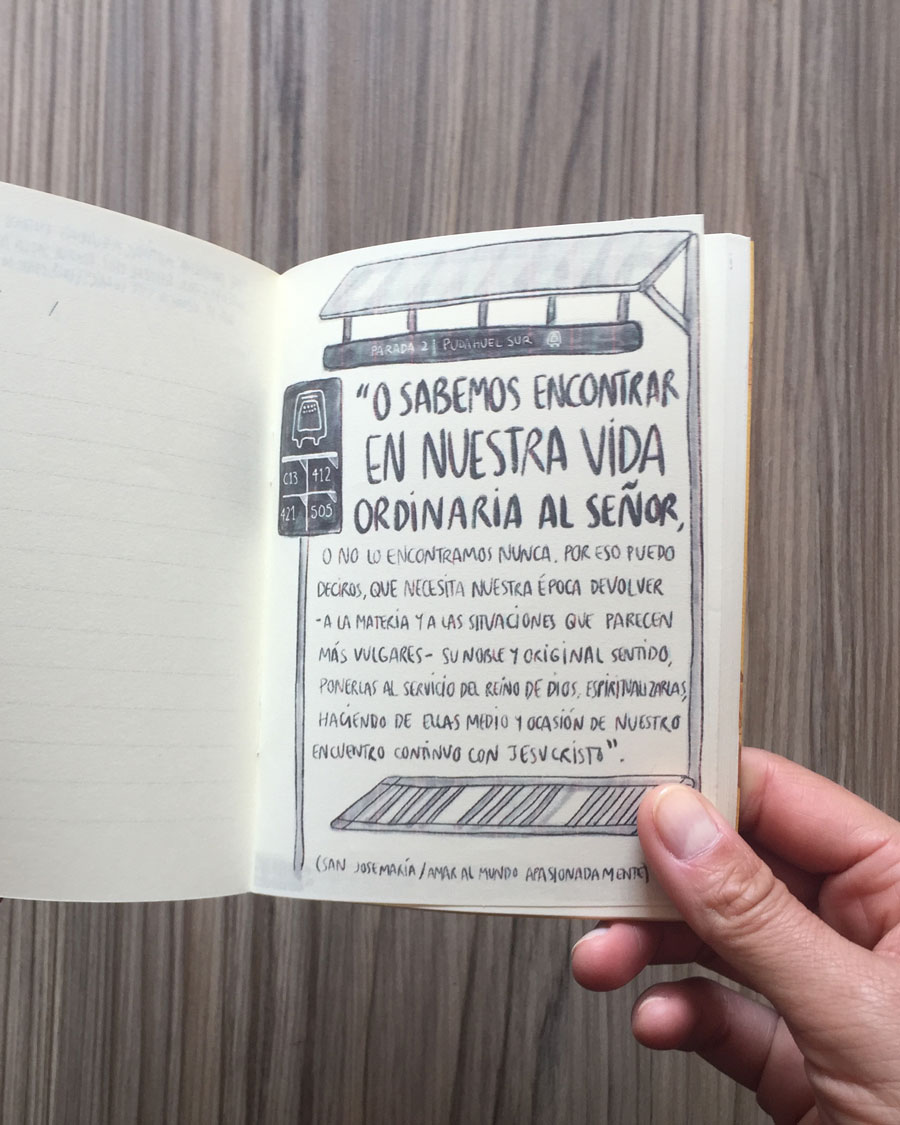 PARADA 2 | PUDAHUEL SUR
C13 412
421 505
"O SABEMOS ENCONTRAR
EN NUESTRA VIDA
ORDINARIA AL SEÑOR,
O NO LO ENCONTRAMOS NUNCA. POR ESO PUEDO
DECIROS, QUE NECESITA NUESTRA ÉPOCA DEVOLVER
-A LA MATERIA Y A LAS SITUACIONES QUE PARECEN
MÁS VULGARES- SU NOBLE Y ORIGINAL SENTIDO,
PONERLAS AL SERVICIO DEL REINO DE DIOS, ESPIRITUALIZARLAS,
HACIENDO DE ELLAS MEDIO Y OCASIÓN DE NUESTRO
ENCUENTRO CONTINUO CON JESUCRISTO".
(SAN JOSEMARÍA / AMAR AL MUNDO APASIONADAMENTE)